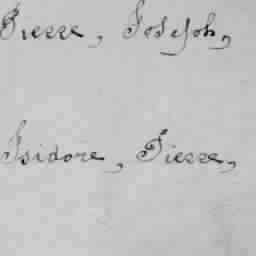 Pierre, Joseph,
Isidore, Pierre,